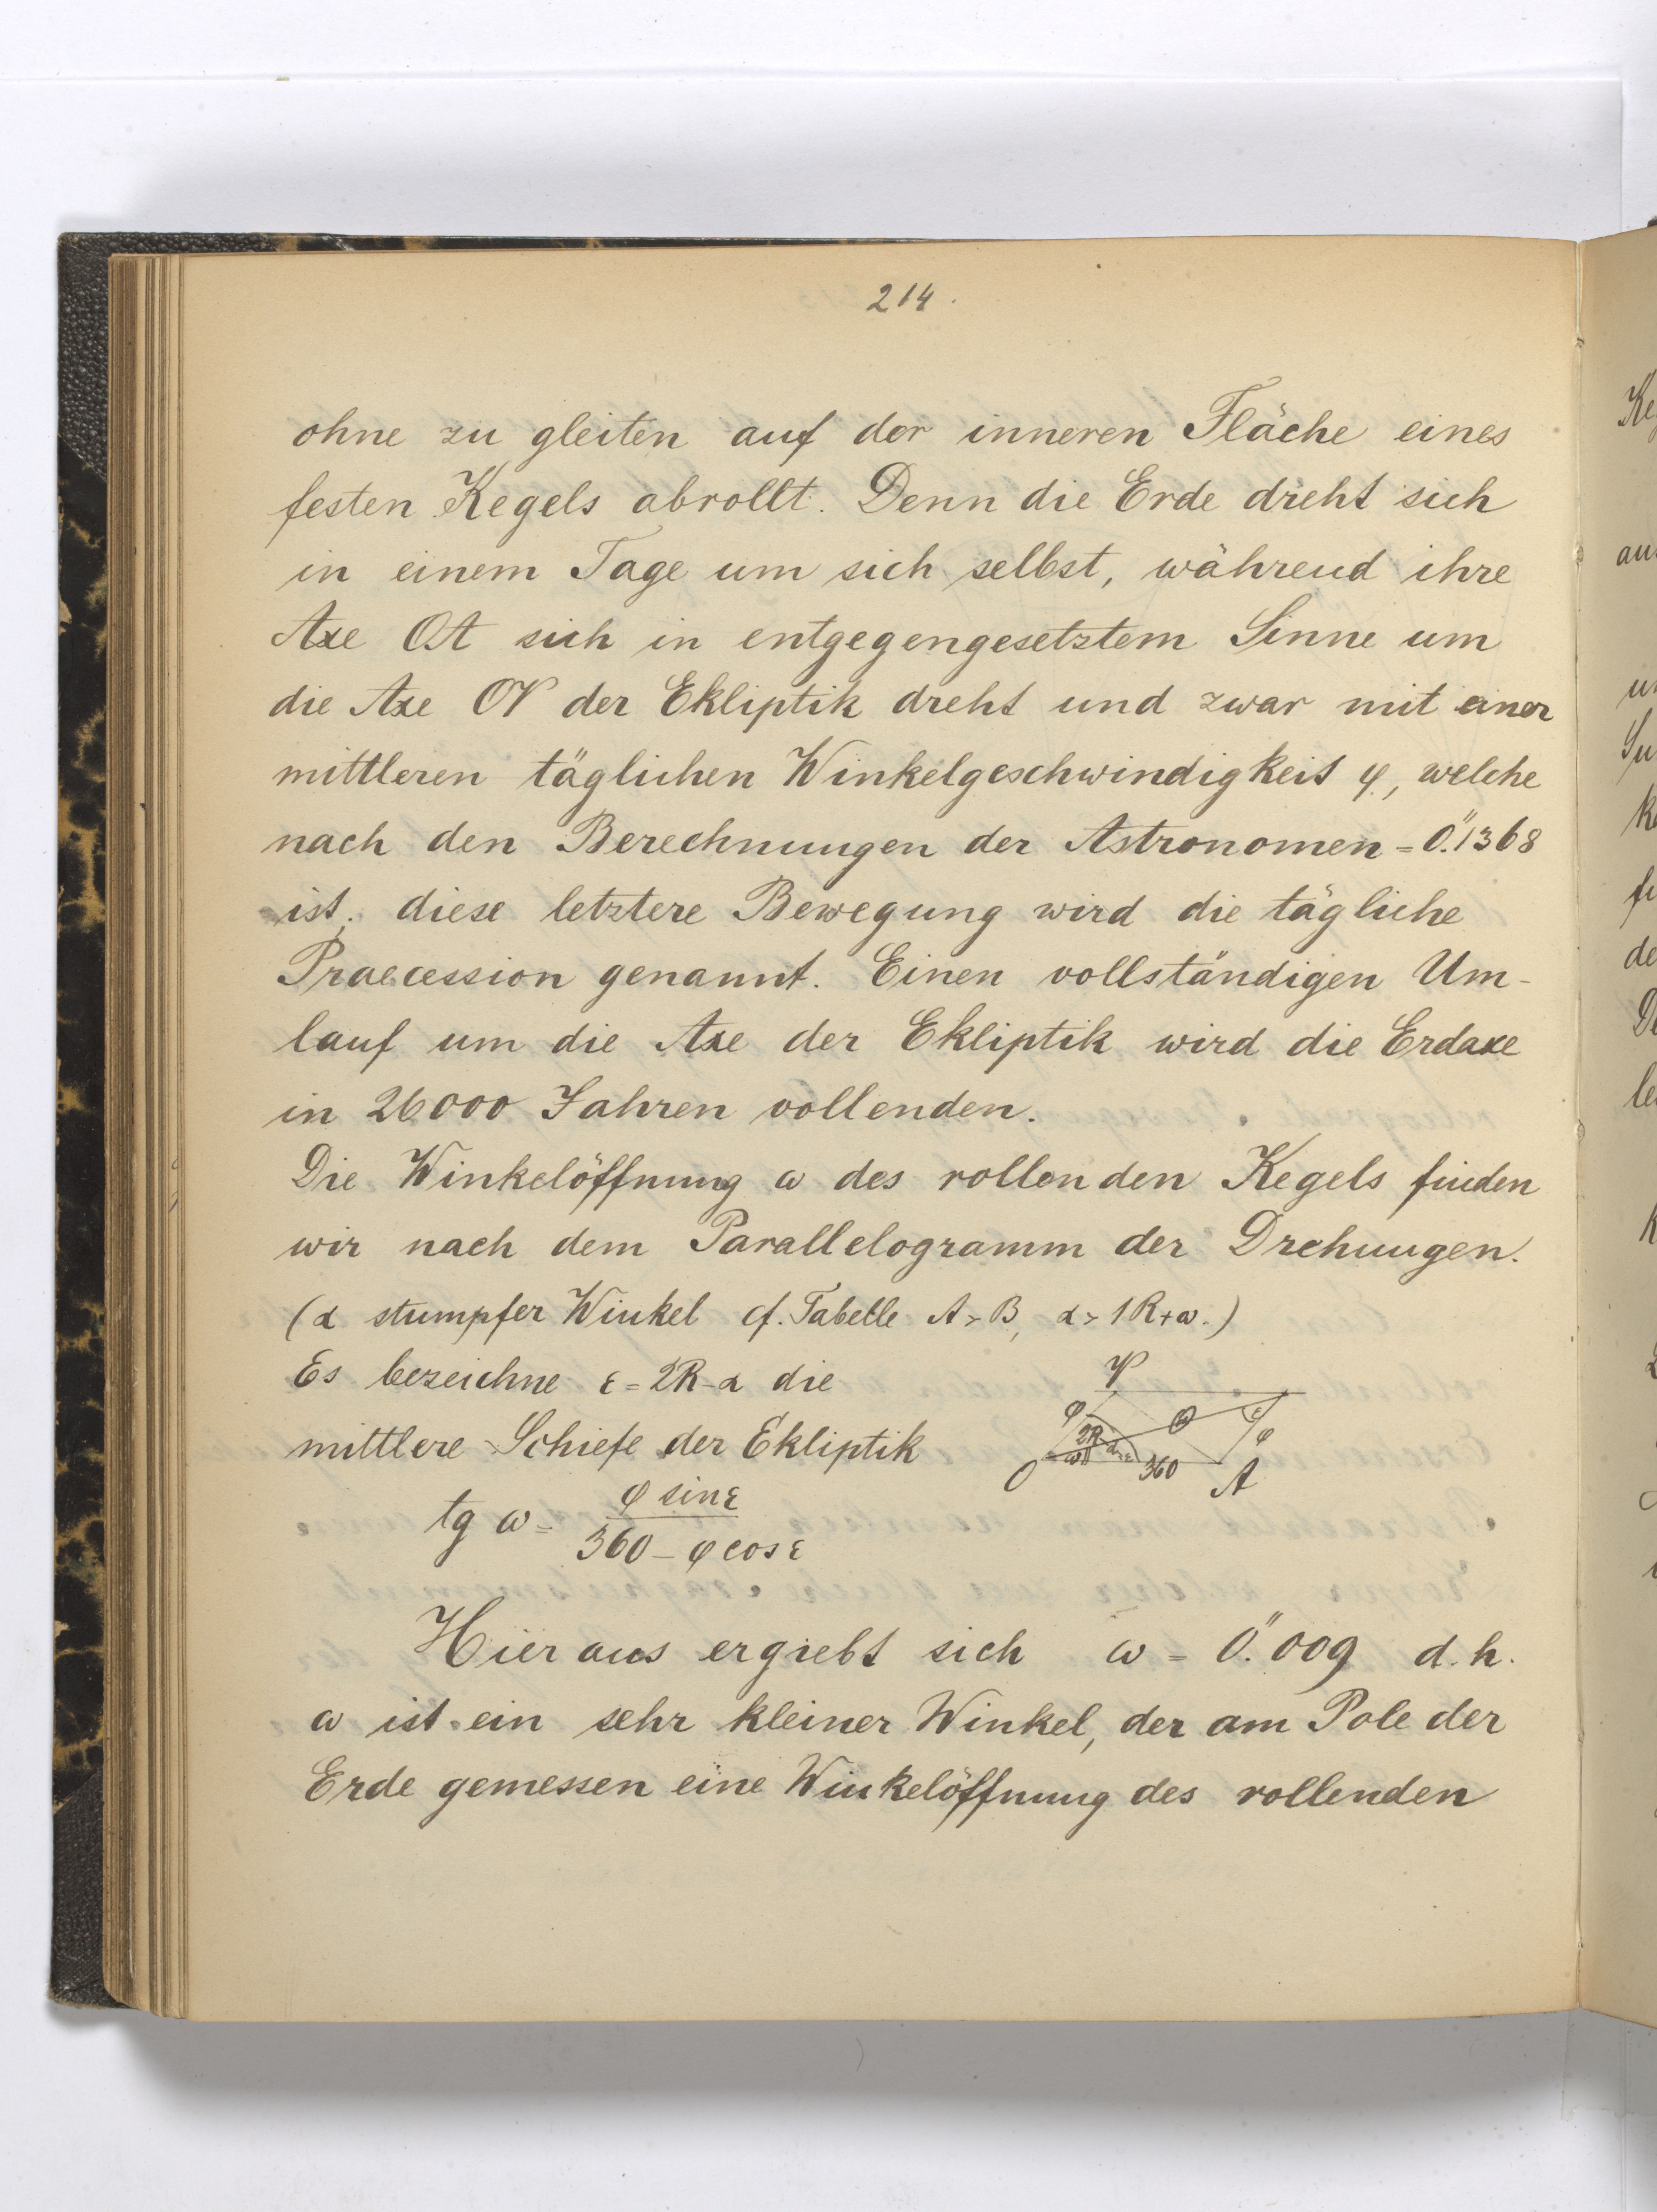 214.
ohne zu gleiten auf der inneren Fläche eines
festen Kegels abrollt. Denn die Erde dreht sich
in einem Tage um sich selbst, während ihre
Axe OA sich in entgegengesetztem Sinne um
die Axe OV der Ekliptik dreht und zwar mit einer
mittleren täglichen Winkelgeschwindigkeit φ, welche
nach den Berechnungen der Astronomen = 0".1368
ist; diese letztere Bewegung wird die tägliche
Praecession genannt. Einen vollständigen Um-
lauf um die Axe der Ekliptik wird die Erdaxe
in 26000 Jahren vollenden.
Die Winkelöffnung ω des rollenden Kegels finden
wir nach dem Parallelogramm der Drehungen.
(α stumpfer Winkel cf. Tabelle A > B, α > 1R+ω.)
Es bezeichne ε = 2R - α die
mittlere Schiefe der Ekliptik
φ
2R
ω
Θ
ε
φ
O
360
A
tg ω = φ sin ε
360 - φ cos ε
Hieraus ergiebt sich ω = 0".009 d.h.
ω ist ein sehr kleiner Winkel, der am Pole der
Erde gemessen eine Winkelöffnung des rollenden